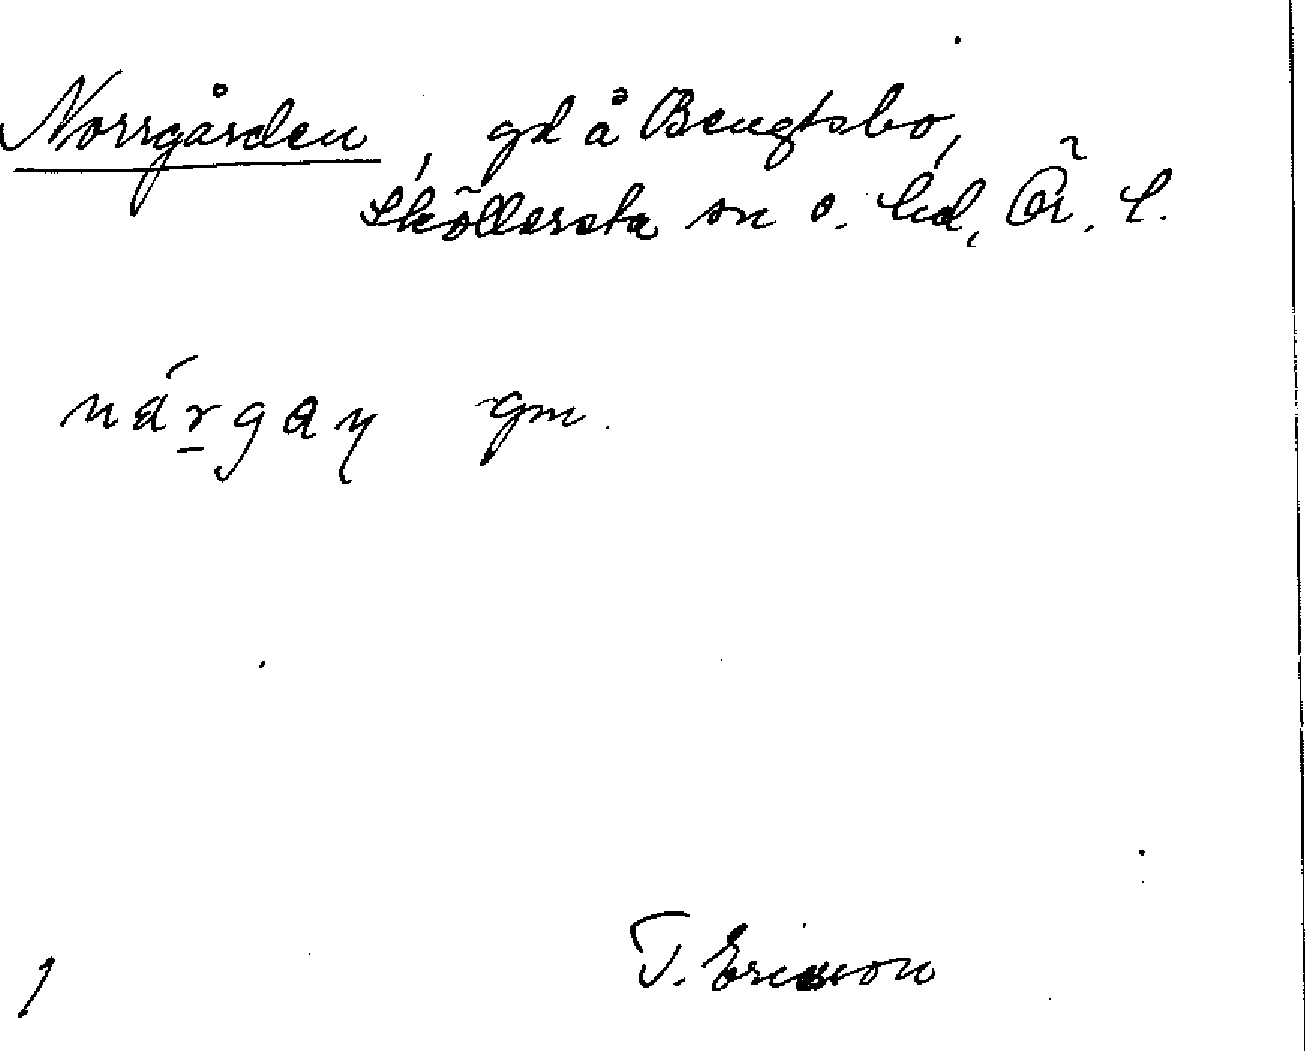 Norrgården, gd å Bengtsbo,
Sköllersta sn o. hd, Ör. l.
gm.
T. Ericsson